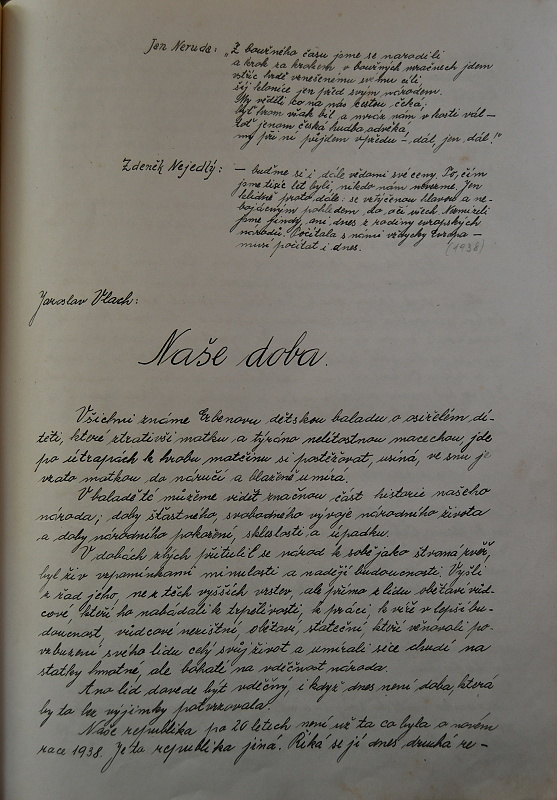 Jan Neruda: „Z bouřného času jsme se narodili
a krok za krokem v bouřných mračnech jdem
vstříc hrdě vznešenému svému cíli
šíj klonice jen před svým národem.
My věděli co na nás cestou čeká,
byť hrom však bil a mráz nám v kosti vál –
toť jenom česká hudba odvěká,
my při ní půjdem v předu! – dál, jen dál!"
Zdeněk Nejedlý: – buďme si i dále vědomi své ceny. To, čím
jsme tisíc let byli, nikdo nám nevezme. Jen
klidně proto dále: se vztyčenou hlavou a ne-
bojácným pohledem do očí všech. Nezmizeli
jsme jindy, ani dnes z rodiny evropských
národů. Počítala s námi vždycky Evropa –
musí počítat i dnes. (1938)
Jaroslav Vlach:
Naše doba.
Všichni známe Erbenovu dětskou baladu o osiřelém dí-
těti, které ztrativši matku a týráno nelítostnou macechou, jde
po útrapách k hrobu matčinu si postěžovat, usíná, ve snu je
vzato matkou do náručí a blaženě umírá.
V baladě té můžeme vidět značnou část historie našeho
národa; doby šťastného, svobodného vývoje národního života
a doby národního pokoření, skleslosti a úpadku.
V dobách zlých přitulil se národ k sobě jako štvaná zvěř,
byl živ vzpomínkami minulosti a nadějí budoucnosti. Vyšli
z řad jeho, ne z těch vyšších vrstev, ale přímo z lidu obětaví vůd-
cové, kteří ho nabádali k trpělivosti, k práci, k víře v lepší bu-
doucnost, vůdcové nezištní, obětaví, stateční, kteří věnovali po-
vzbuzení svého lidu celý svůj život a umírali sice chudí na
statky hmotné, ale bohatí na vděčnost národa.
Ano lid dovede být vděčný, i když dnes není doba, která
by to bez výjimky potvrzovala.
Naše republika po 20 letech není už ta co byla o novém
roce 1938. Je to republika jiná. Říká se jí dnes druhá re-